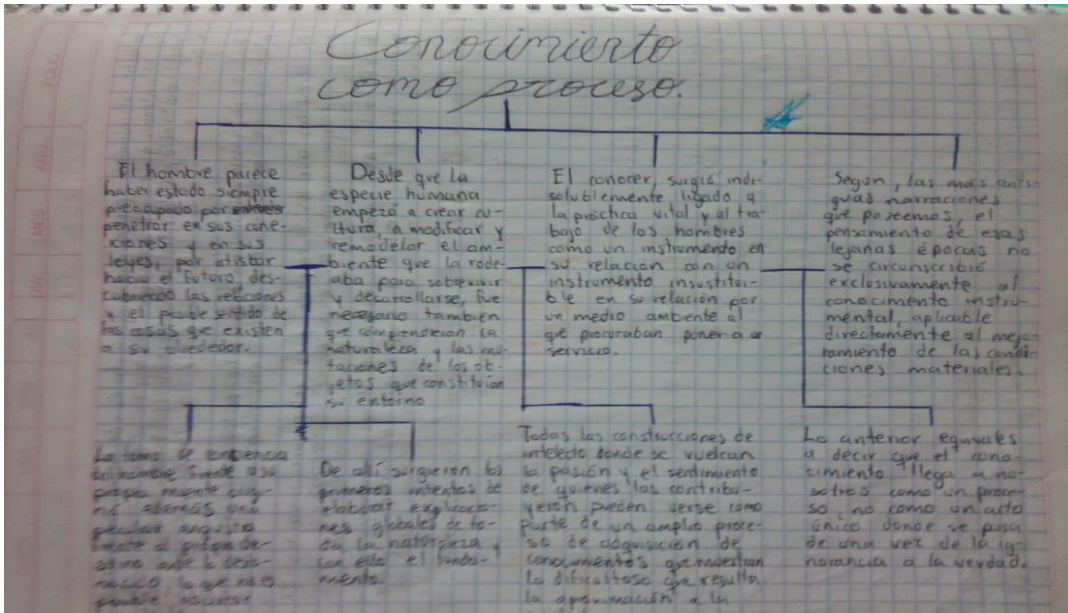 Conocimiento
como proceso.
El hombre parece
haber estado siempre
preocupado por
penetrar en sus cone-
xiones y en sus
leyes, por atisbar
hacia el futuro des-
cubriendo las relaciones
y el posible sentido de
las cosas que existen
a su alrededor.
Desde que la
especie humana
empezó a crear cu-
ltura, a modificar y
remodelar el am-
biente que la rode-
aba para sobrevivir
y desarrollarse, fue
necesario también
que comprendieran la
naturaleza y las mu-
taciones de los ob-
jetos que constituían
su entorno
El conocer, surgió indi-
solublemente ligado a
la práctica vital y al tra-
bajo de los hombres
como un instrumento en
su relación con un
instrumento insustitui-
ble en su relación por
un medio ambiente al
que procuraban poner a
servicio.
Según, las más anti-
guas narraciones
que poseemos, el
pensamiento de esas
lejanas épocas no
se circunscribió
exclusivamente al
conocimiento instru-
mental, aplicable
directamente al mejo-
ramiento de las condi-
ciones materiales.
La toma de conciencia
del hombre frente a su
propia muerte
además una
peculiar angustia
frente al propio de-
stino ante lo desco-
lo que no es
De allí surgieron los
primeros intentos de
elaborar explicacio-
nes globales de to-
da la naturaleza y
con ello el funda-
mento.
Todas las construcciones de
intelecto donde se vuelcan
la pasión y el sentimiento
de quienes las contribu-
yerón pueden verse como
parte de un amplio proce-
so de adquisición de
conocimientos que muestran
lo dificultoso que resulta
la aproximación a la
Lo anterior equivales
a decir que el cono-
cimiento llega a no-
sotros como un proce-
so, no como un acto
único donde se pasa
de una vez de la ig-
norancia a la verdad.